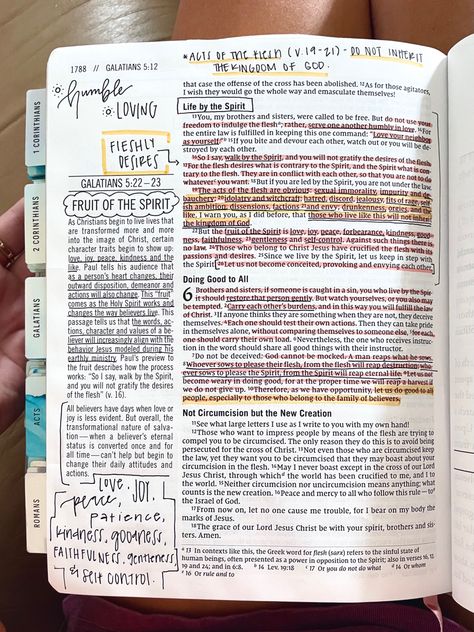 1788 // GALATIANS 5:12
*ACTS OF THE FLESH (V. 19-21) - DO NOT INHERIT
THE KINGDOM OF GOD.
humble
LOVING
FLESHLY
DESIRES
GALATIANS 5:22–23
FRUIT OF THE SPIRIT
As Christians begin to live lives that
are transformed more and more
into the image of Christ, certain
character traits begin to show up:
love, joy, peace, kindness and the
like. Paul tells his audience that
as a person's heart changes, their
outward disposition, demeanor and
actions will also change. This "fruit"
comes as the Holy Spirit works and
changes the way believers live. This
passage tells us that the words, ac-
tions, character and values of a be-
liever will increasingly align with the
behavior Jesus modeled during his
earthly ministry. Paul's preview to
the fruit describes how the process
works: "So I say, walk by the Spirit,
and you will not gratify the desires
of the flesh" (v. 16).
All believers have days when love or
joy is less evident. But overall, the
transformational nature of salva-
tion—when a believer's eternal
status is converted once and for
all time—can't help but begin to
change their daily attitudes and
actions.
LOVE, JOY,
peace,
PATIENCE,
kindness, goodness,
FAITHFULNESS, gentleness
& self control.
that case the offense of the cross has been abolished. 12As for those agitators,
I wish they would go the whole way and emasculate themselves!
Life by the Spirit
13You, my brothers and sisters, were called to be free. But do not use your
freedom to indulge the flesh; rather, serve one another humbly in love. 14For
the entire law is fulfilled in keeping this one command: "Love your neighbor
as yourself." 15If you bite and devour each other, watch out or you will be de-
stroyed by each other.
16So I say, walk by the Spirit, and you will not gratify the desires of the flesh.
17For the flesh desires what is contrary to the Spirit, and the Spirit what is con-
trary to the flesh. They are in conflict with each other, so that you are not to do
whatever you want. 18But if you are led by the Spirit, you are not under the law.
19The acts of the flesh are obvious: sexual immorality, impurity and de-
bauchery; 20idolatry and witchcraft; hatred, discord, jealousy, fits of rage, self-
ish ambition, dissensions, factions 21and envy; drunkenness, orgies, and the
like. I warn you, as I did before, that those who live like this will not inherit
the kingdom of God.
22But the fruit of the Spirit is love, joy, peace, forbearance, kindness, good-
ness, faithfulness, 23gentleness and self-control. Against such things there is
no law. 24Those who belong to Christ Jesus have crucified the flesh with its
passions and desires. 25Since we live by the Spirit, let us keep in step with
the Spirit. 26Let us not become conceited, provoking and envying each other.
Doing Good to All
6 Brothers and sisters, if someone is caught in a sin, you who live by the Spir-
it should restore that person gently. But watch yourselves, or you also may
be tempted. 2Carry each other's burdens, and in this way you will fulfill the law
of Christ. 3If anyone thinks they are something when they are not, they deceive
themselves. 4Each one should test their own actions. Then they can take pride
in themselves alone, without comparing themselves to someone else, 5for each
one should carry their own load. 6Nevertheless, the one who receives instruc-
tion in the word should share all good things with their instructor.
7Do not be deceived: God cannot be mocked. A man reaps what he sows.
8Whoever sows to please their flesh, from the flesh will reap destruction; who-
ever sows to please the Spirit, from the Spirit will reap eternal life. 9Let us not
become weary in doing good, for at the proper time we will reap a harvest if
we do not give up. 10Therefore, as we have opportunity, let us do good to all
people, especially to those who belong to the family of believers.
Not Circumcision but the New Creation
11See what large letters I use as I write to you with my own hand!
12Those who want to impress people by means of the flesh are trying to
compel you to be circumcised. The only reason they do this is to avoid being
persecuted for the cross of Christ. 13Not even those who are circumcised keep
the law, yet they want you to be circumcised that they may boast about your
circumcision in the flesh. 14May I never boast except in the cross of our Lord
Jesus Christ, through which the world has been crucified to me, and I to
the world. 15Neither circumcision nor uncircumcision means anything; what
counts is the new creation. 16Peace and mercy to all who follow this rule—to
the Israel of God.
17From now on, let no one cause me trouble, for I bear on my body the
marks of Jesus.
18The grace of our Lord Jesus Christ be with your spirit, brothers and sis-
ters. Amen.
a 13 In contexts like this, the Greek word for flesh (sarx) refers to the sinful state of
human beings, often presented as a power in opposition to the Spirit; also in verses 16, 17,
19 and 24; and in 6:8. b 14 Lev. 19:18 c 17 Or you do not do what d 14 Or whom
e 16 Or rule and to
1 CORINTHIANS
2 CORINTHIANS
GALATIANS
ACTS
ROMANS